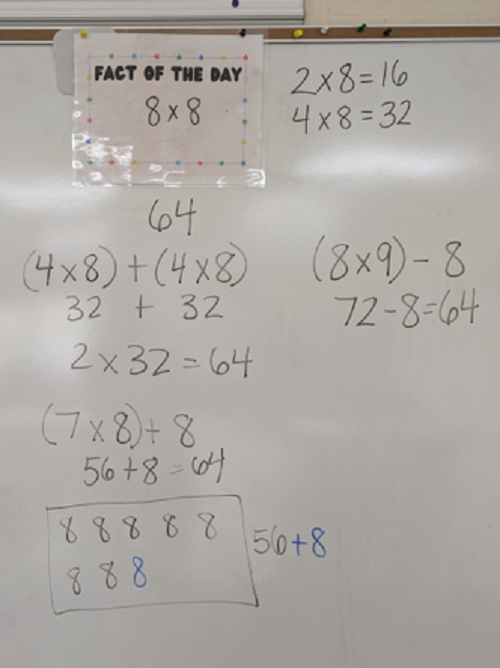 FACT OF THE DAY
8 x 8
2 x 8 = 16
4 x 8 = 32
64
(4 x 8) + (4 x 8)
32 + 32
2 x 32 = 64
(8 x 9) - 8
72 - 8 = 64
(7 x 8) + 8
56 + 8 = 64
8 8 8 8 8
8 8 8
56 + 8